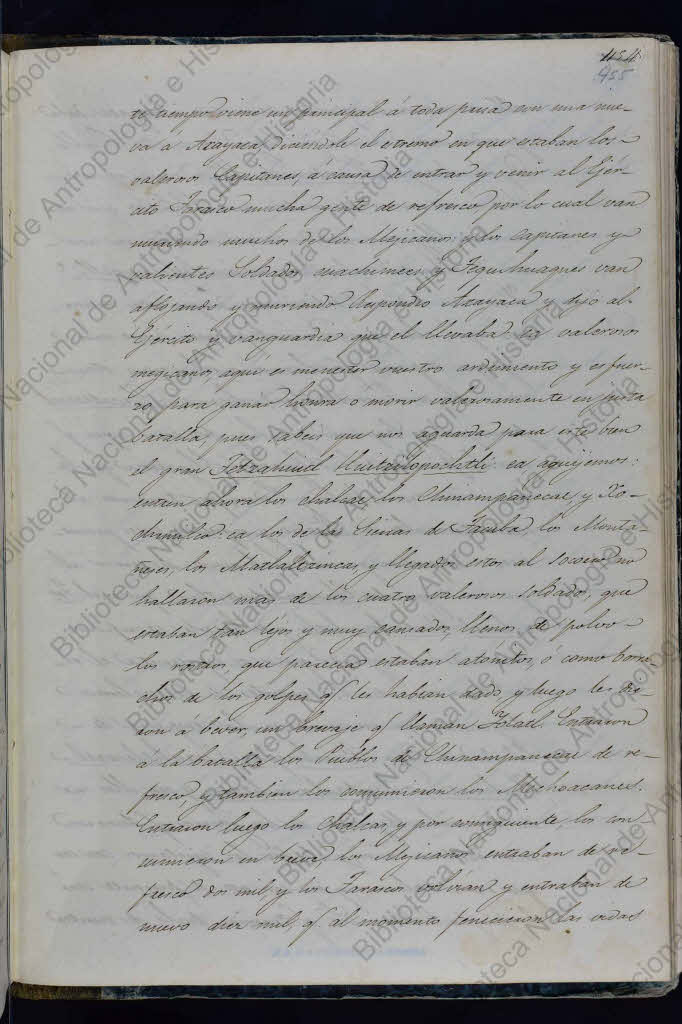 454
455
te tiempo viene un principal á toda priesa con una nue-
va a Axayaca, diciéndole el etremo en que estaban los
valerosos Capitanes, á causa de entrar y venir al Ejér-
cito Tarasco mucha gente de refresco por lo cual van
muriendo muchos de los Mejicanos y los Capitanes y
valientes Soldados cuachimees, y Tequihuaques van
aflojando y muriendo. Respondio Axayaca y dijo al
Ejército y vanguardia que el llevaba ea valerosos
megicanos, aquí es menester vuestro ardimiento y esfuer-
zo, para ganar honra o morir valerosamente en justa
batalla, pues sabeis que nos aguarda para este bien
el gran Tetzahuitl Huitzilopochtli: ea aquijemos:
entren ahora los chalcas, los Chinampanecas, y Xo-
chimilco: ea los de las Sierras de Tacuba, los Monta-
ñeses, los Matlaltzincas, y llegados estos al socorro, no
hallaron mas de los cuatro valerosos soldados, que
estaban tan lejos y muy cansados, llenos de polvo
los rostros, que parecia estaban atonitos, ó como borra-
chos de los golpes q.^ les habian dado, y luego les die-
ron á bever, un brevaje q.^ llaman Yolatl. Entraron
á la batalla los Pueblos de Chinampanecas de re-
fresco, y tambien los consumieron los Mechoacanes.
Entraron luego los Chalcas, y por consiguiente, los con
sumieron en breve, los Mejicanos entraban de re-
fresco dos mil, y los Tarascos volvian y entraban de
nuevo diez mil, q.^ al momento fenecieron las vidas
Biblioteca Nacional de Antropología e Historia